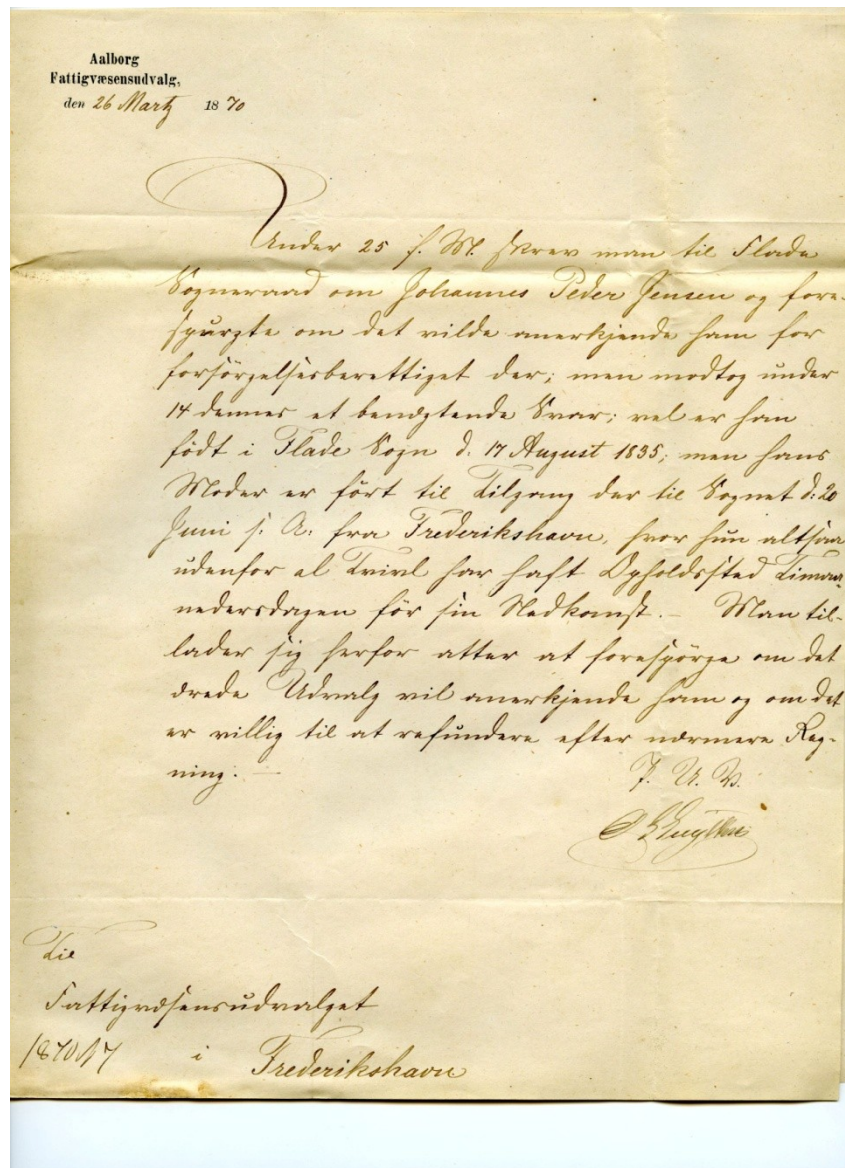 Aalborg
Fattigvæsensudvalg,
den 26 Martz 1870
Under 25 f. M. skrev man til Flade
Sogneraad om Johannes Peder Jensen og fore-
spurgte om det vilde anerkjende ham for
forsørgelsesberettiget der; men modtog under
14 dennes et benægtende Svar; vel er han
født i Flade Sogn d. 17 August 1835; men hans
Moder er ført til Tilgang der til Sognet d: 20
Juni s: A: fra Frederikshavn, hvor hun altsaa
udenfor al Tvivl har haft Opholdssted Timaa-
nedersdagen før sin Nedkomst. – Man til-
lader sig herfor atter at forespørge om det
ærede Udvalg vil anerkjende ham og om det
er villig til at refundere efter nærmere Reg-
ning. –
P. U. V.
Til
Fattigvæsensudvalget
i Frederikshavn